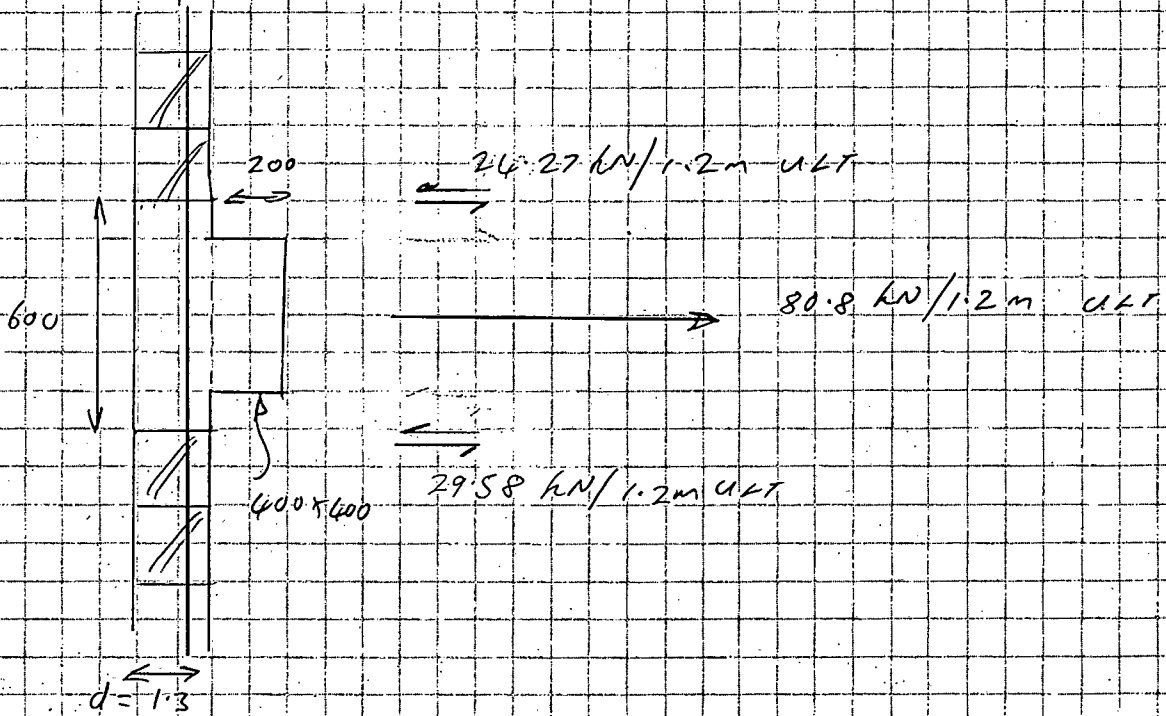 200
24.27 kN/1.2m ULT
600
80.8 kN/1.2m ULT
400x400
29.58 kN/1.2m ULT
d = 1.3